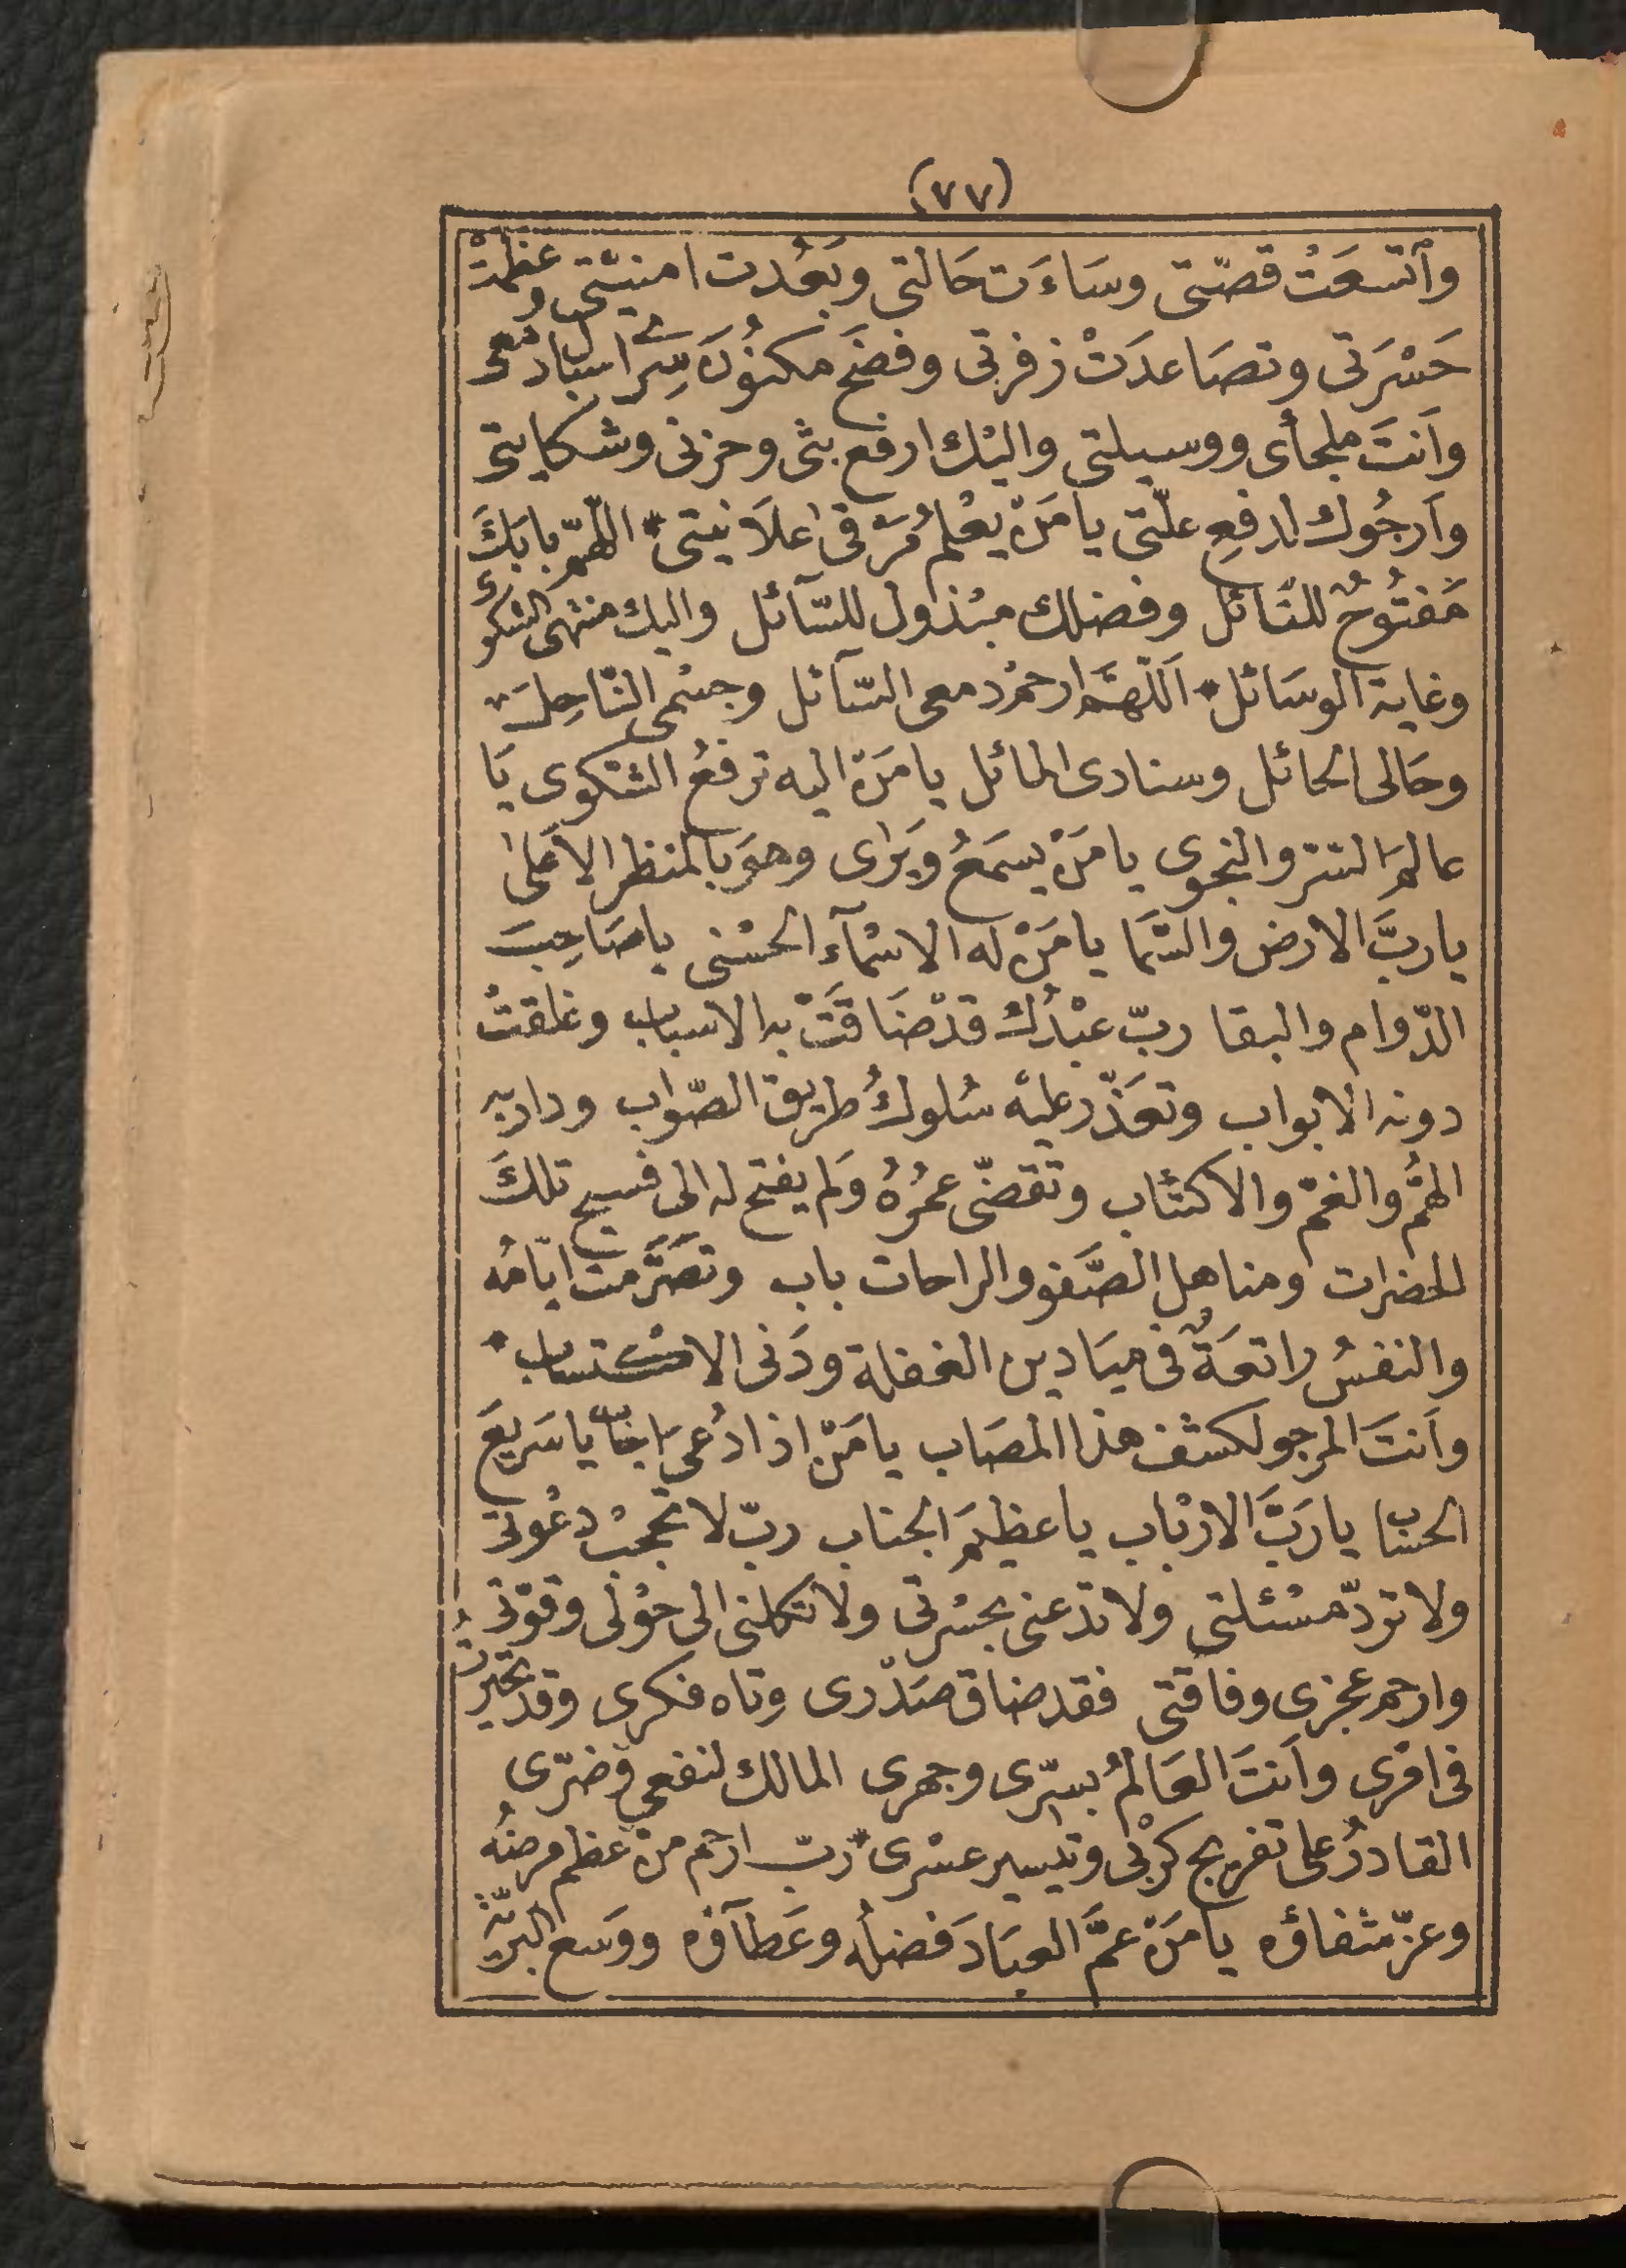 (٧٧)
وٱتسَعَتْ قصّتى وسَاءَت حَالتى وبَعُدت امنيّتى وعظمَتْ
حَسْرَتى وتصَاعدَتْ زفرتى وفضَح مكنوُنَ سِرّى اسبال دمعى
وَانتَ ملجأى ووسيلتى واليْك ارفع بثى وحزنى وشكايتى
وَارجُوك لدفعِ علّتى يا مَنْ يعْلمُ سِرّى فى اعلاَنيتى * اللّهمّ بابَكَ
مَفتُوحٌ للسّائل وفضلك مبْذول للسّآئل واليك منتهى الشكوى
وغاية الوسَائل * اَللّهمَّ ارحمْ دمعى السّآئل وجسْمى النّاحِل
وحَالى الحائل وسنادى المائل يا مَنْ اليه ترفعُ الشكوى يَا
عالمَ السّرّ والنجوى يا مَنْ يسمَعُ ويَرٰى وهوَ بالمنظر الاَعلىٰ
يا ربَّ الارض والسَّمَا يا مَنْ له الاسْمآء الحسْنى يا صَاحِبَ
الدّوام والبقا ربّ عبْدُك قدْ ضَاقَتْ به الاسباب وغلقتْ
دونه الابواب وتعَذّر عليْه سُلوكُ طريق الصّواب وداربه
الهمُّ والغمّ والاكتئاب وتقضّى عمُرُهُ وَلم يفتح له الى فسيح تلكَ
الحضرات ومناهل الصَّفو والراحات باب وتصَرَّمت ايّامُه
والنفسُ راتعَةٌ فى ميَادين الغفلة ودَنى الاكتساب *
وَانتَ المرجو لكشف هذا المصَاب يا مَنْ اذا دُعىَ اجَابَ يا سَريعَ
الحسَاب يا رَبَّ الارْباب يا عظيمَ الجناب ربّ لا تحجُبْ دعْوتى
ولا تردّ مسْئلتى ولا تدَعنى بحسْرتى ولا تكلنى الى حوْلى وقوّتى
وارحم عجزى وفاقتى فقد ضاق صَدْرى وتاه فكرى وقد تحيّرتُ
فى امْرى وَانتَ العَالمُ بسّرى وجهرى المالك لنفعى وضرّى
القادرُ على تفريج كرْبى وتيْسير عسْرى * ربّ ارحم منْ عظم مرضُه
وعزّ شفاؤه يا مَنْ عمَّ العبَادَ فضلُه وعَطآؤه ووَسع البريّة